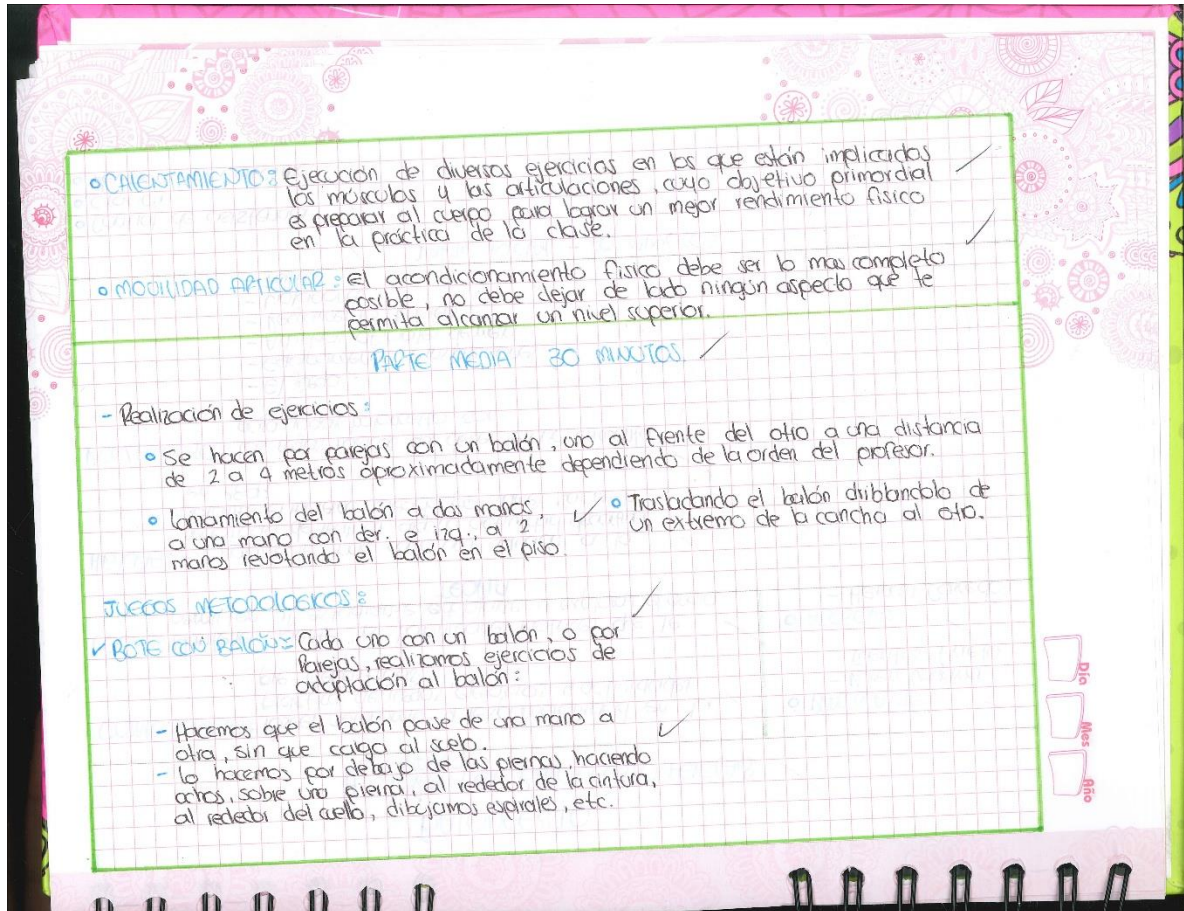 ° CALENTAMIENTO: Ejecución de diversos ejercicios en los que están implicados
los músculos y las articulaciones, cuyo objetivo primordial
es preparar al cuerpo para lograr un mejor rendimiento físico
en la práctica de la clase.
° MOVILIDAD ARTICULAR: El acondicionamiento físico debe ser lo mas completo
posible, no debe dejar de lado ningún aspecto que te
permita alcanzar un nivel superior.
PARTE MEDIA 30 MINUTOS.
- Realización de ejercicios:
° Se hacen por parejas con un balón, uno al frente del otro a una distancia
de 2 a 4 metros aproximadamente dependiendo de la orden del profesor.
° lanzamiento del balón a dos manos,
a una mano con der. e izq., a 2
manos revotando el balón en el piso.
° Trasladando el balón dribbandolo de
un extremo de la cancha al otro.
JUEGOS METODOLOGICOS:
✓ BOTE CON BALÓN: Cada uno con un balón, o por
Parejas, realizamos ejercicios de
adaptación al balón:
- Hacemos que el balón pase de una mano a
otra, sin que caiga al suelo.
- lo hacemos por debajo de las piernas, haciendo
ochos, sobre una pierna, al rededor de la cintura,
al rededor del cuello, dibujamos espirales, etc.
Día
Mes
Año